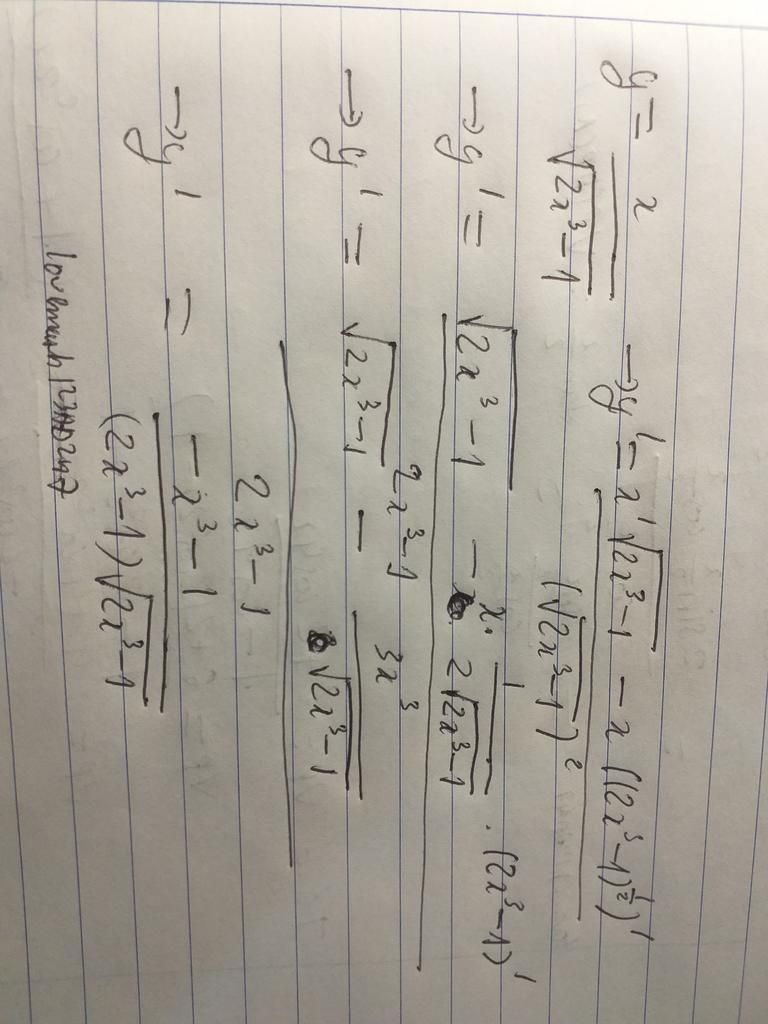 y = x / √(2x³-1) → y' = (x'√(2x³-1) - x((2x³-1)^(1/2))') / (√(2x³-1))²
→ y' = (√(2x³-1) - x · 1/(2√(2x³-1)) · (2x³-1)') / (2x³-1)
→ y' = (√(2x³-1) - 3x³/√(2x³-1)) / (2x³-1)
→ y' = (-x³-1) / ((2x³-1)√(2x³-1))